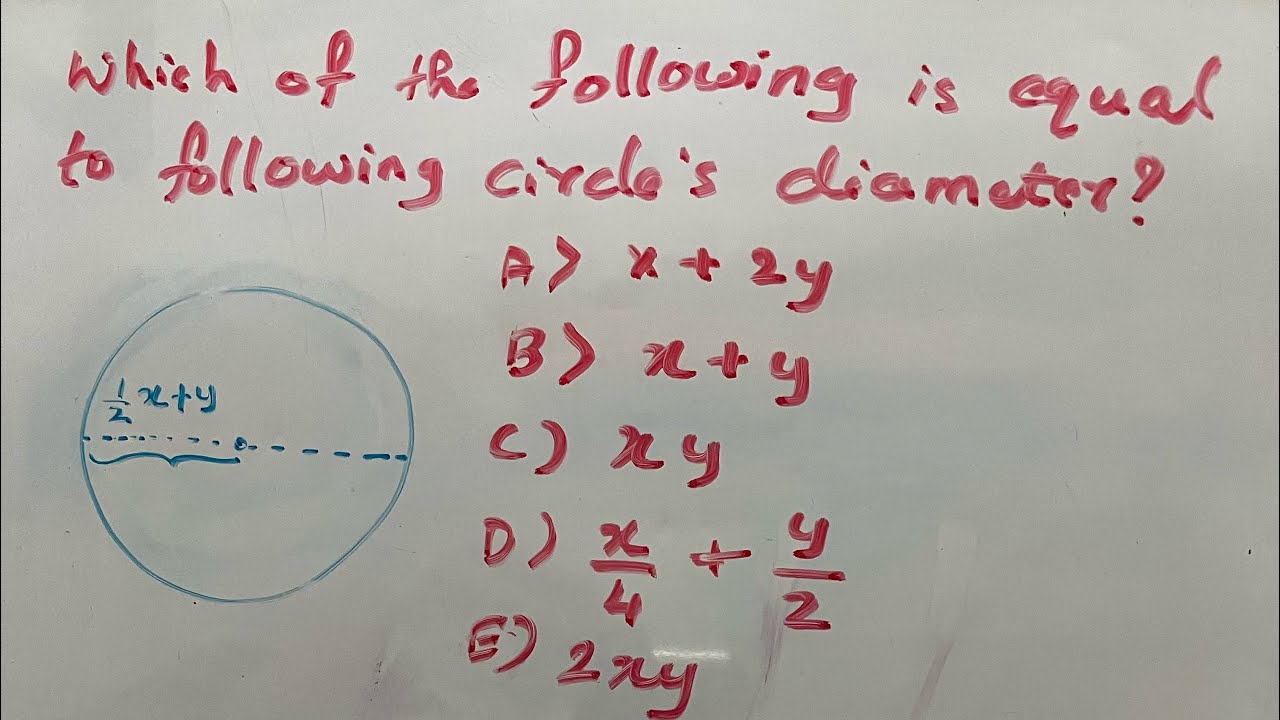 Which of the following is equal
to following circle's diameter?
A> x + 2y
B> x + y
½ x + y
C) xy
D) x/4 + y/2
E) 2xy